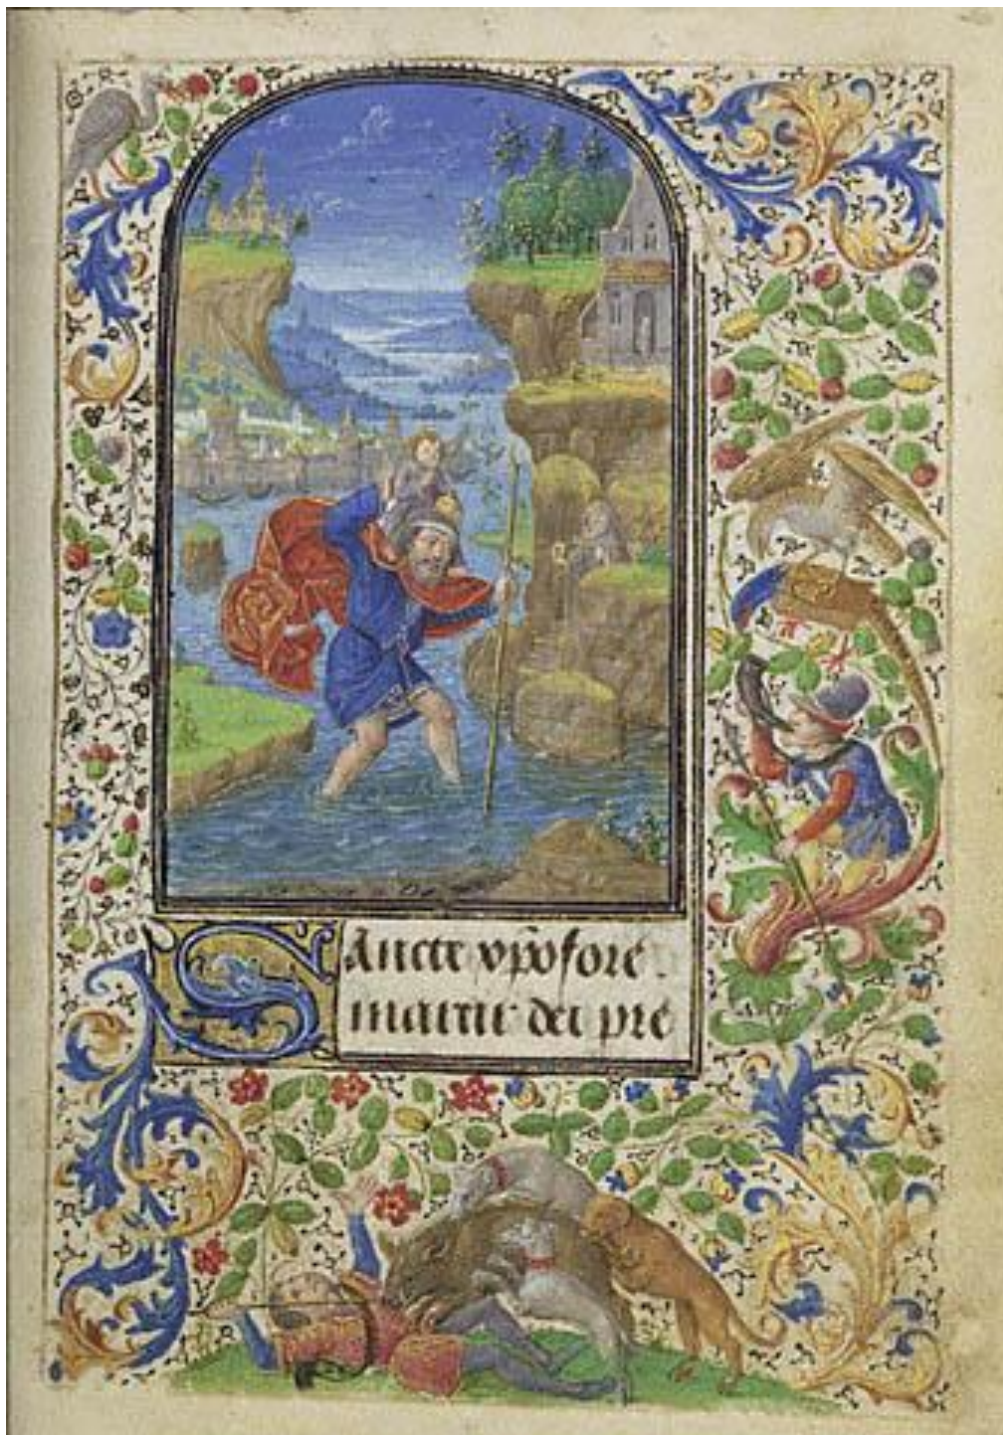 Sancte xp̄ofore
martir dei pre